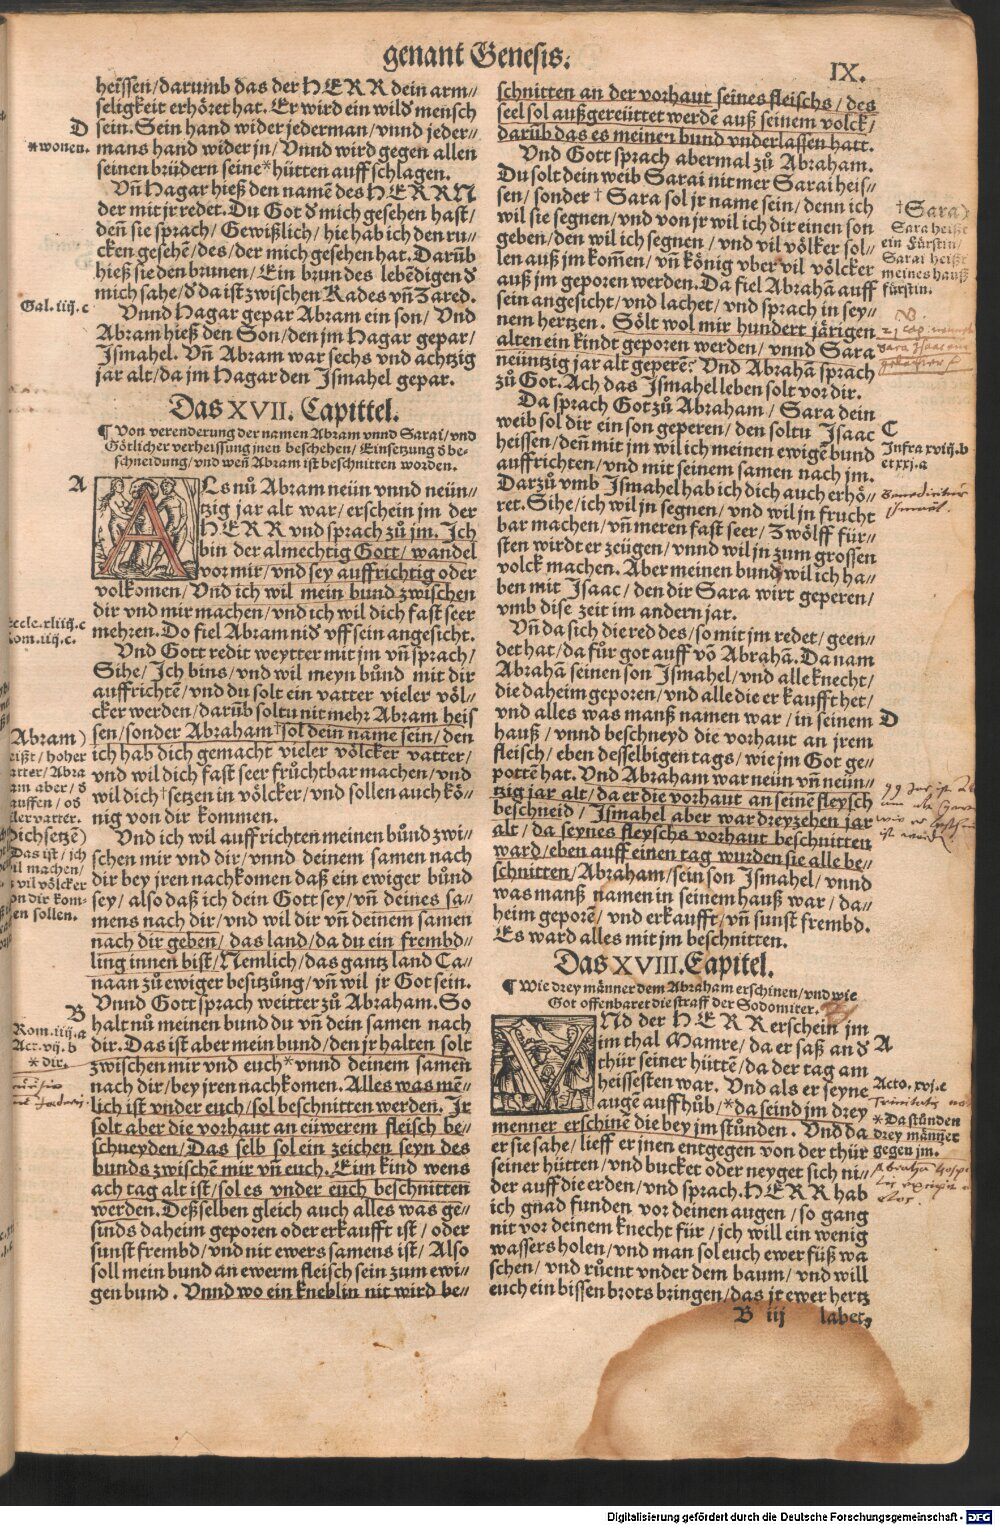 genant Genesis.
IX.
heissen/darumb das der HERR dein arm⸗
seligkeit erhöret hat. Er wird ein wild mensch
D
sein. Sein hand wider jederman/vnnd jeder⸗
*wonen.
mans hand wider jn/Vnnd wird gegen allen
seinen brüdern seine*hütten auff schlagen.
Vñ Hagar hieß den namē des HERRN
der mit jr redet. Du Got d mich gesehen hast/
deñ sie sprach/Gewißlich/hie hab ich den ru⸗
cken gesehē/des/der mich gesehen hat. Darūb
hieß sie den brunen/Ein brun des lebēdigen d
mich sahe/d da ist zwischen Kades vñ Zared.
Gal.iiij.c
Vnnd Hagar gepar Abram ein son/Vnd
Abram hieß den Son/den jm Hagar gepar/
Jsmahel. Vñ Abram war sechs vnd achtzig
jar alt/da jm Hagar den Jsmahel gepar.
Das XVII. Capittel.
¶ Von verenderung der namen Abram vnnd Sarai/vnd
Götlicher verheissung jnen beschehen/Einsetzung d be⸗
schneidung/vnd weñ Abram ist beschnitten worden.
A
ALs nů Abram neün vnnd neün⸗
tzig jar alt war/erschein jm der
HERR vnd sprach zů jm. Ich
bin der almechtig Gott/wandel
vor mir/vnd sey auffrichtig oder
volkomen/Vnd ich wil mein bund zwischen
dir vnd mir machen/vnd ich wil dich fast seer
mehren. Do fiel Abram nid vff sein angesicht.
eccle.xliiij.c
Rom.iiij.c.
Vnd Gott redit weytter mit jm vñ sprach/
Sihe/Ich bins/vnd wil meyn bůnd mit dir
auffrichtē/vnd du solt ein vatter vieler völ⸗
cker werden/darūb soltu nit mehr Abram heis
sen/sonder Abraham†sol dein name sein/den
ich hab dich gemacht vieler völcker vatter/
vnd wil dich fast seer frůchtbar machen/vnd
wil dich†setzen in völcker/vnd sollen auch kö⸗
nig von dir kommen.
Abram)
eißt/hoher
atter/Abra
am aber/d
auffen/od
ller vatter.
dichsetzē)
Das ist/ich
il machen/
vil völcker
on dir kom⸗
en sollen.
Vnd ich wil auffrichten meinen bůnd zwi⸗
schen mir vnd dir/vnnd deinem samen nach
dir bey jren nachkomen daß ein ewiger bůnd
sey/also daß ich dein Gott sey/vñ deines sa⸗
mens nach dir/vnd wil dir vñ deinem samen
nach dir geben/das land/da du ein frembd⸗
ling innen bist/Nemlich/das gantz land Ca⸗
naan zů ewiger besitzůng/vñ wil jr Got sein.
B
Vnnd Gott sprach weitter zů Abraham. So
halt nů meinen bund du vñ dein samen nach
dir. Das ist aber mein bund/den jr halten solt
Rom.iiij.a
Act.vij.b
*dir.
zwischen mir vnd euch*vnnd deinem samen
nach dir/bey jren nachkomen. Alles was mē⸗
lich ist vnder euch/sol beschnitten werden. Jr
solt aber die vorhaut an eüwerem fleisch be⸗
schneyden/Das selb sol ein zeichen seyn des
bunds zwischē mir vñ euch. Eim kind wens
ach tag alt ist/sol es vnder euch beschnitten
werden. Deßselben gleich auch alles was ge⸗
sinds daheim geporen oder erkaufft ist/oder
sunst frembd/vnd nit ewers samens ist/Also
soll mein bund an ewerm fleisch sein zum ewi⸗
gen bund. Vnnd wo ein kneblin nit wird be⸗
schnitten an der vorhaut seines fleischs/des
seel sol außgereüttet werdē auß seinem volck/
darūb das es meinen bund vnderlassen hatt.
Vnd Gott sprach abermal zů Abraham.
Du solt dein weib Sarai nit mer Sarai heis⸗
sen/sonder †Sara sol jr name sein/denn ich
wil sie segnen/vnd von jr wil ich dir einen son
geben/den wil ich segnen/vnd vil völker sol⸗
len auß jm komēn/vñ könig vber vil völcker
auß jm geporen werden. Da fiel Abrahā auff
sein angesicht/vnd lachet/vnd sprach in sey⸗
nem hertzen. Sölt wol mir hundert järigen
alten ein kindt geporen werden/vnnd Sara
neüntzig jar alt geperē? Vnd Abrahā sprach
zů Got. Ach das Jsmahel leben solt vor dir.
†Sara)
Sara heißt
ein Fürstin/
Sarai heißt
meines hauß
fürstin.
Da sprach Got zů Abraham/Sara dein
weib sol dir ein son geperen/den soltu Isaac
heissen/deñ mit jm wil ich meinen ewigē bund
auffrichten/vnd mit seinem samen nach jm.
Darzů vmb Jsmahel hab ich dich auch erhö⸗
ret. Sihe/ich wil jn segnen/vnd wil jn frucht
bar machen/vñ meren fast seer/Zwölff für⸗
sten wirdt er zeügen/vnnd wil jn zum grossen
volck machen. Aber meinen bund wil ich ha⸗
ben mit Isaac/den dir Sara wirt geperen/
vmb dise zeit im andern jar.
C
Infra xviij.b
et xxj.a
Vñ da sich die red des/so mit jm redet/geen⸗
det hat/da für got auff vō Abrahā. Da nam
Abrahā seinen son Jsmahel/vnd alle knecht/
die daheim geporen/vnd alle die er kaufft het/
vnd alles was manß namen war/in seinem
D
hauß/vnnd beschneyd die vorhaut an jrem
fleisch/eben desselbigen tags/wie jm Got ge⸗
pottē hat. Vnd Abraham war neün vñ neün⸗
tzig jar alt/da er die vorhaut an seinē fleysch
beschneid/Jsmahel aber war dreyzehen jar
alt/da seynes fleyschs vorhaut beschnitten
ward/eben auff einen tag wurden sie alle be⸗
schnitten/Abraham/sein son Jsmahel/vnnd
was manß namen in seinem hauß war/da⸗
heim geporē/vnd erkaufft/vñ sunst frembd.
Es ward alles mit jm beschnitten.
Das XVIII. Capitel.
¶ Wie drey männer dem Abraham erschinen/vnd wie
Got offenbaret die straff der Sodomiter.
VNd der HERR erschein jm
im thal Mamre/da er saß an d
A
thür seiner hüttē/da der tag am
heissesten war. Vnd als er seyne
augē auffhůb/*da seind jm drey
menner erschinē die bey jm stůnden. Vnd da
er sie sahe/lieff er jnen entgegen von der thür
seiner hütten/vnd bucket oder neyget sich ni⸗
der auff die erden/vnd sprach. HERR hab
ich gnad funden vor deinen augen/so gang
nit vor deinem knecht für/ich will ein wenig
wassers holen/vnd man sol euch ewer füß wa
schen/vnd růent vnder dem baum/vnd will
euch ein bissen brots bringen/das jr ewer hertz
Acto.xvj.c
*Da stůnden
drey männer
gegen jm.
B iij
labet,
Digitalisierung gefördert durch die Deutsche Forschungsgemeinschaft - DFG